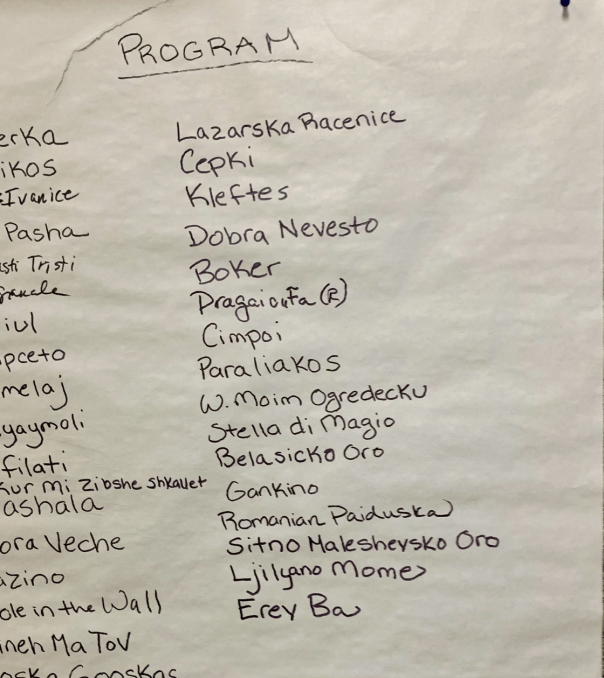 PROGRAM
erka
ikos
Ivanice
Pasha
sti Tristi
iul
pceto
melaj
yaymoli
filati
kur mi zibshe shkauet
ashala
ora Veche
azino
ole in the Wall
ineh Ma Tov
Lazarska Racenice
Cepki
Kleftes
Dobra Nevesto
Boker
Dragaicuta (R)
Cimpoi
Paraliakos
W. Moim Ogredecku
Stella di Magio
Belasicko Oro
Gankino
Romanian Paiduska
Sitno Maleshevsko Oro
Ljilyano Mome
Erev Ba